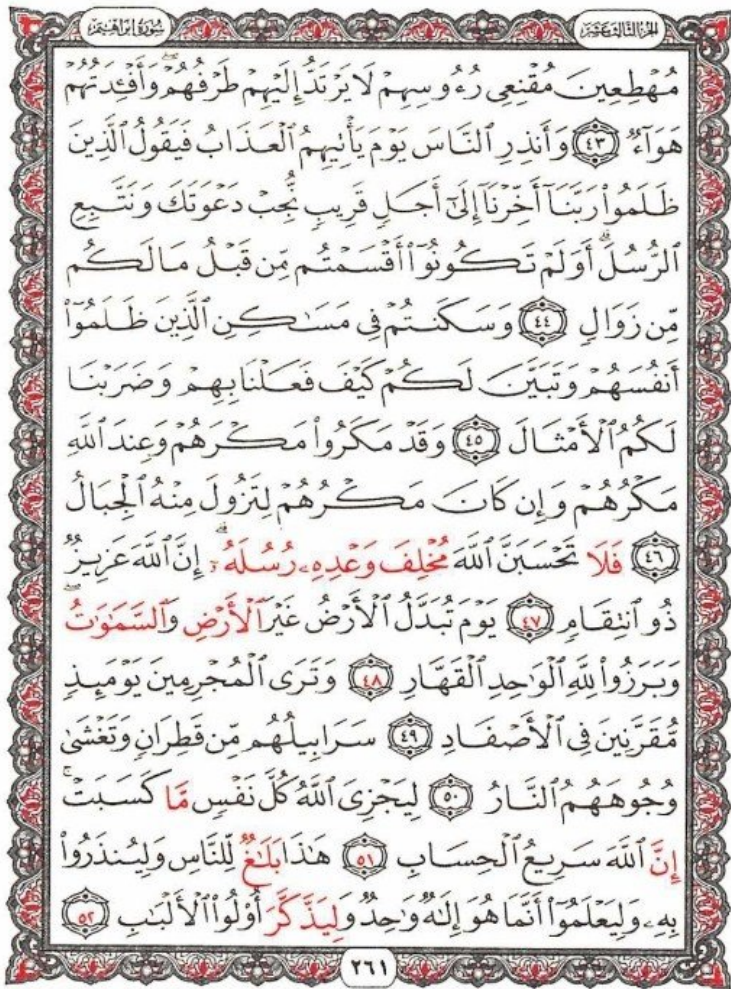 الجزء الثالث عشر
سورة إبراهيم
مُهْطِعِينَ مُقْنِعِى رُءُوسِهِمْ لَا يَرْتَدُّ إِلَيْهِمْ طَرْفُهُمْ ۖ وَأَفْـِٔدَتُهُمْ
هَوَآءٌ ٤٣ وَأَنذِرِ ٱلنَّاسَ يَوْمَ يَأْتِيهِمُ ٱلْعَذَابُ فَيَقُولُ ٱلَّذِينَ
ظَلَمُوا۟ رَبَّنَآ أَخِّرْنَآ إِلَىٰٓ أَجَلٍ قَرِيبٍ نُّجِبْ دَعْوَتَكَ وَنَتَّبِعِ
ٱلرُّسُلَ ۗ أَوَلَمْ تَكُونُوٓا۟ أَقْسَمْتُم مِّن قَبْلُ مَا لَكُم
مِّن زَوَالٍ ٤٤ وَسَكَنتُمْ فِى مَسَـٰكِنِ ٱلَّذِينَ ظَلَمُوٓا۟
أَنفُسَهُمْ وَتَبَيَّنَ لَكُمْ كَيْفَ فَعَلْنَا بِهِمْ وَضَرَبْنَا
لَكُمُ ٱلْأَمْثَالَ ٤٥ وَقَدْ مَكَرُوا۟ مَكْرَهُمْ وَعِندَ ٱللَّهِ
مَكْرُهُمْ وَإِن كَانَ مَكْرُهُمْ لِتَزُولَ مِنْهُ ٱلْجِبَالُ
٤٦ فَلَا تَحْسَبَنَّ ٱللَّهَ مُخْلِفَ وَعْدِهِۦ رُسُلَهُۥٓ ۗ إِنَّ ٱللَّهَ عَزِيزٌ
ذُو ٱنتِقَامٍ ٤٧ يَوْمَ تُبَدَّلُ ٱلْأَرْضُ غَيْرَ ٱلْأَرْضِ وَٱلسَّمَـٰوَٰتُ ۖ
وَبَرَزُوا۟ لِلَّهِ ٱلْوَٰحِدِ ٱلْقَهَّارِ ٤٨ وَتَرَى ٱلْمُجْرِمِينَ يَوْمَئِذٍ
مُّقَرَّنِينَ فِى ٱلْأَصْفَادِ ٤٩ سَرَابِيلُهُم مِّن قَطِرَانٍ وَتَغْشَىٰ
وُجُوهَهُمُ ٱلنَّارُ ٥٠ لِيَجْزِىَ ٱللَّهُ كُلَّ نَفْسٍ مَّا كَسَبَتْ ۚ
إِنَّ ٱللَّهَ سَرِيعُ ٱلْحِسَابِ ٥١ هَـٰذَا بَلَـٰغٌ لِّلنَّاسِ وَلِيُنذَرُوا۟
بِهِۦ وَلِيَعْلَمُوٓا۟ أَنَّمَا هُوَ إِلَـٰهٌ وَٰحِدٌ وَلِيَذَّكَّرَ أُو۟لُوا۟ ٱلْأَلْبَـٰبِ ٥٢
٢٦١